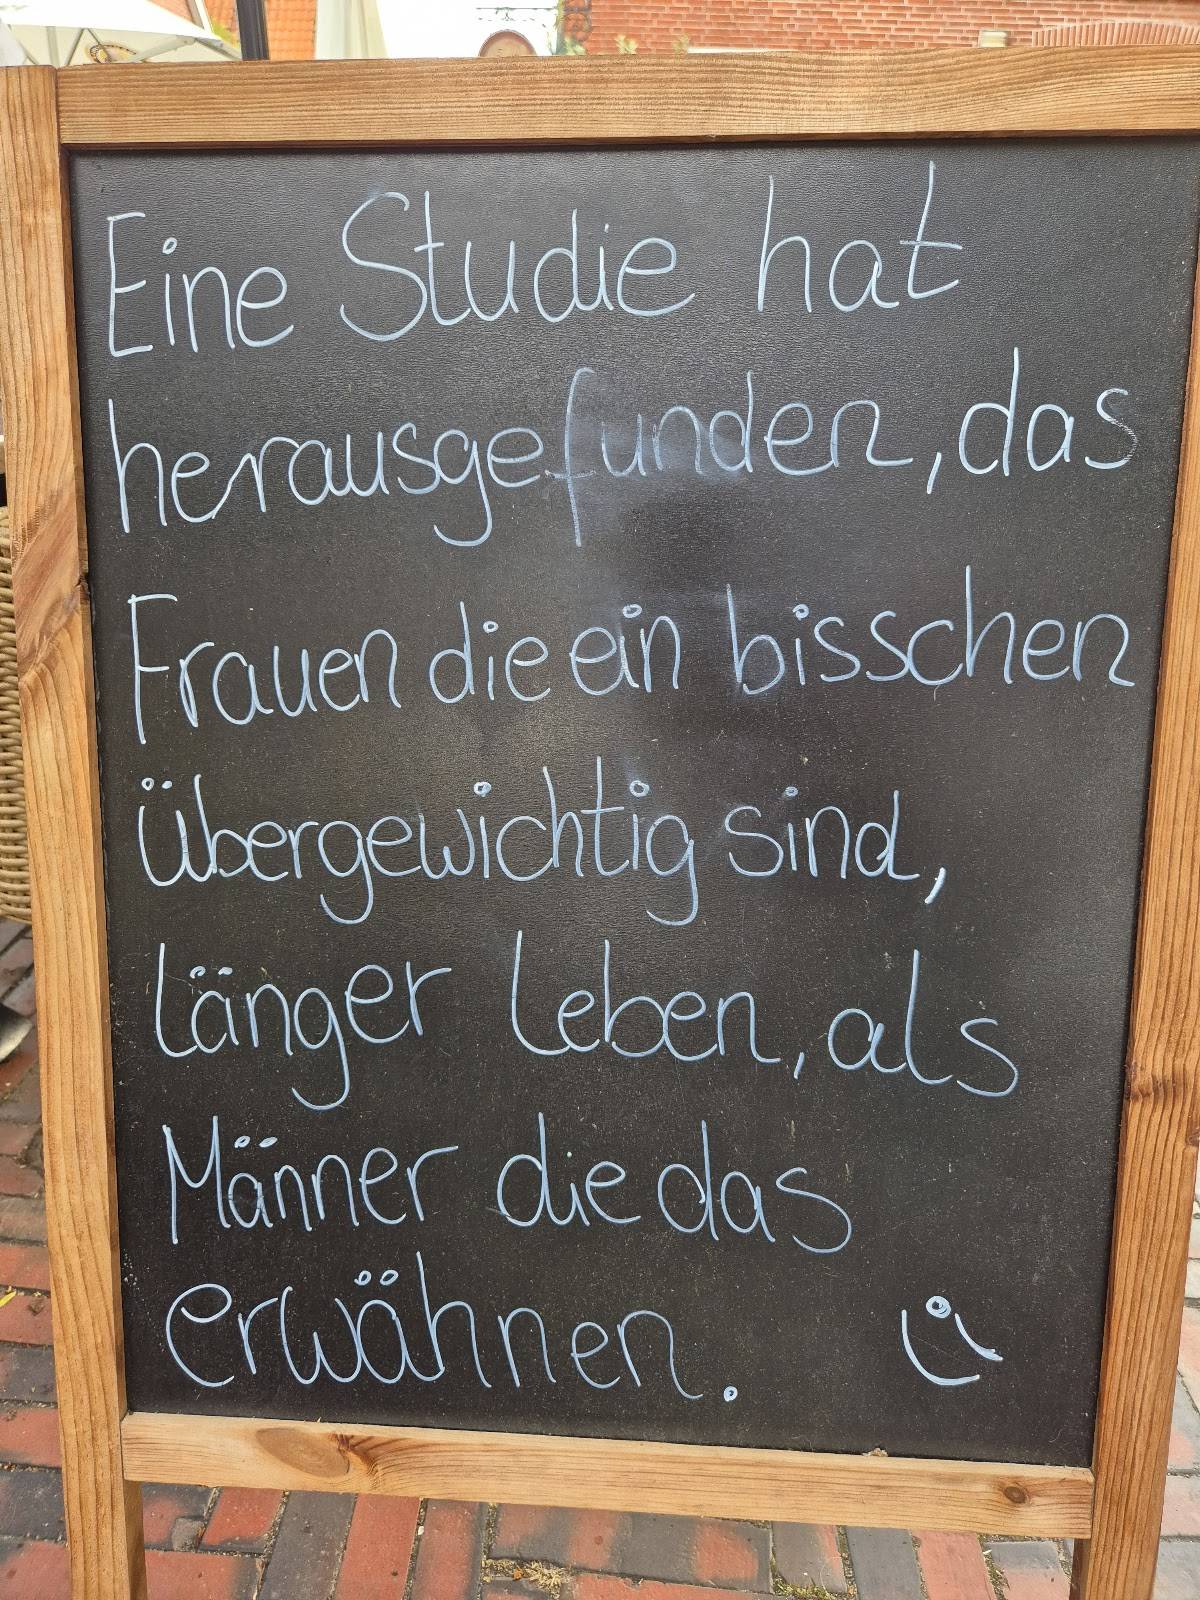 Eine Studie hat
herausgefunden, das
Frauen die ein bisschen
übergewichtig sind,
länger leben, als
Männer die das
erwähnen.